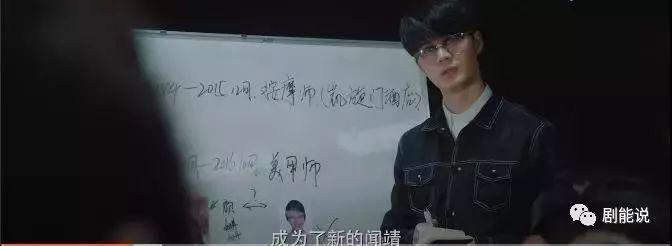 —2015.12月.按摩师(凯旋门酒店)
月—2016.10月.美甲师
?
成为了新的闻靖
剧能说